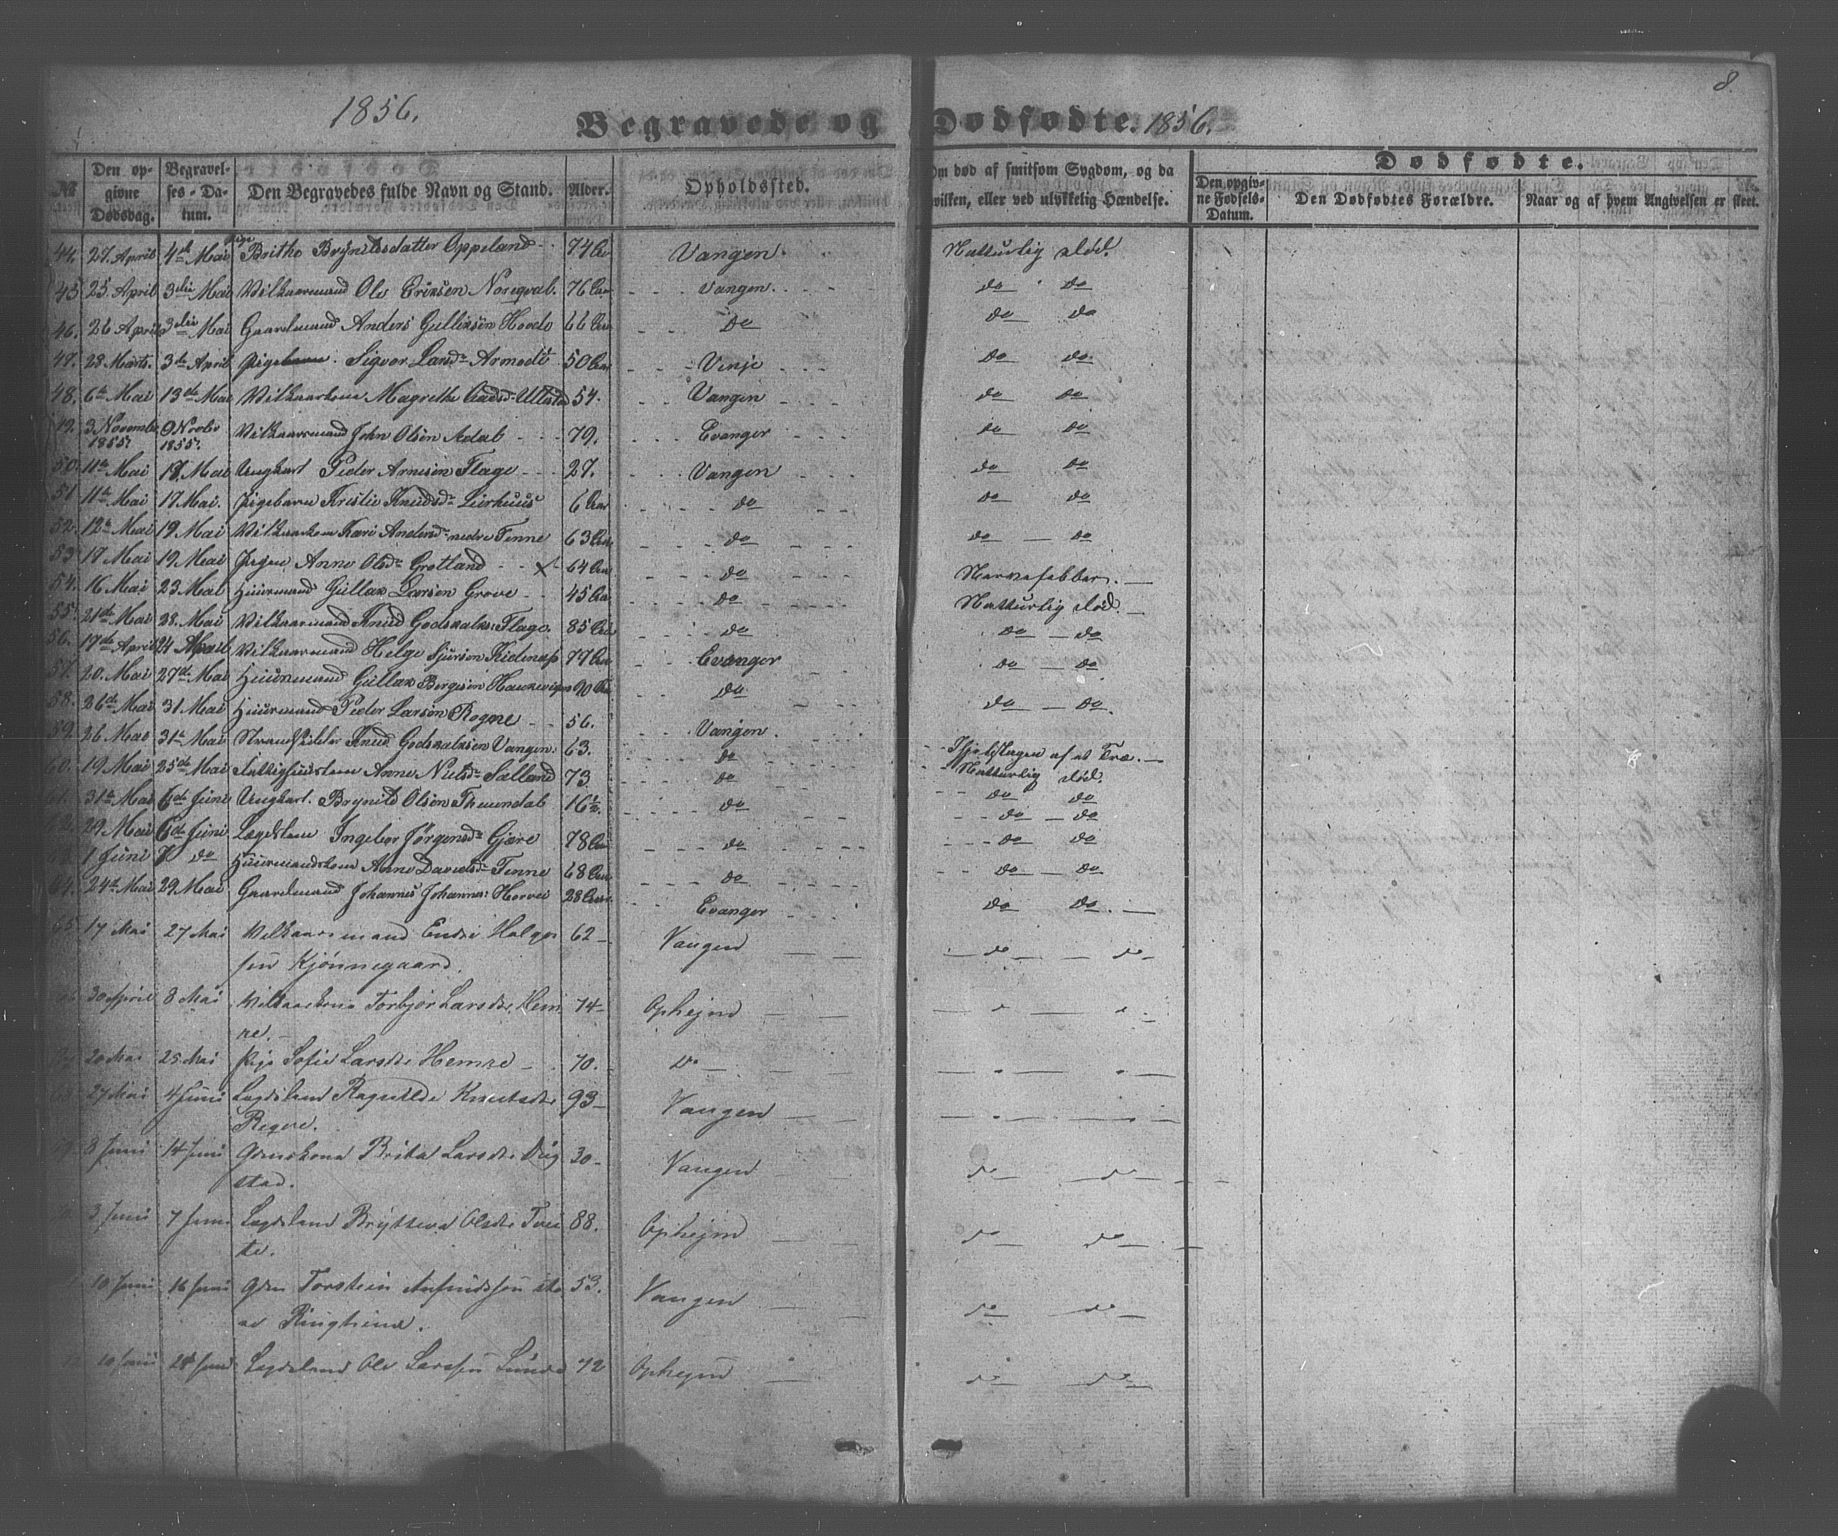 8.
1856.
Begravede og Dødfødte. 1856.
No.
Den opgivne Dødsdag.
Begravelses-Datum.
Den Begravedes fulde Navn og Stand.
Alder.
Opholdssted.
Om død af smitsom Sygdom, og da hvilken, eller ved ulykkelig Hændelse.
Dødfødte.
Den opgivne Fødsels-Datum.
Den Dødfødtes Forældre.
Naar og af hvem Angivelsen er skeet.
44. 27. April 4de Mai Pige Britho Brynildsdatter Oppeland - - 74 Aar Vangen. Natturlig død.
45 25. April 3die Mai Vilkaarmand Ole Eriksen Norqval. 76 Aar - - Vangen. - - - do do
46. 26 April 3die Mai Gaardmand Anders Gulliksen Hovdo 66 Aar - - - do do do
47. 28 Marts. 3de April Pige Sigvor Larsd: Armodt 50 Aar - - - Vinje do do
48. 6te Mai 13de Mai Vilkaarkone Magrethe Ullstad 54. - - Vangen - - - do do
49. 3 Novembr 1855. 9 Novbr 1855. Vilkaarsmand John Olsen Adal - - - 79. - - - Evanger - - - do do
50. 11te Mai 17. Mai Ungkarl Peder Arnesen Flage - - - 27. - - - Vangen - - - do do
51 11te Mai 17. Mai. Pigebarn Kristie Knudsd: Leirhuus 6 Aar - - - do - - - do do
52. 12te Mai 19 Mai Vilkaarkone Kari Andersd: nedre Finne 63 Aar - - - do - - - do - do
53 17 Mai 19. Mai Pigen Anne Olsd: Grotland - - x 64 Aar - - - do - - - Nervefebber. -
54. 16 Mai 23. Mai Huusmand Gullak Larsen Grove - - 45 Aar - - - do - - - Natturlig død. -
55. 21de Mai 28. Mai Vilkaarmand Knud Godskalks: Flage. 85 Aar - - - do do - do
56. 17de April 24 April Vilkaarmand Helge Sjursen 77 Aar - - Evanger - - do - do
57. 20. Mai 27de Mai Huusmand Gullak Borgesen 90 Aar - - - do - - - do - do.
58. 26de Mai 31. Mai Huusmand Peder Larsen Rogne - - 56. - - - Vangen. - - - do - do.
59. 26 Mai 31te Mai Strandsidder Knud Godskalksen Vangen: 63. - - - do Ihjelslagen af et Træ. -
60. 19 Mai 25de Mai Fattiglemskone Anne Nielsd: Sælland 73 - - - do Natturlig død.
61. 31te Mai 6de Juni Ungkarl. Brynild Olsen 16½ - - - do do do
62. 29 Mai 6de Juni Lægdslem Ingebor Jørgensd: Gjære 78 Aar - - - do - - - do do
63. 1 Juni 7 do Huusmandskone Anne Davidsd: Finne 68 Aar - - - do - - - do do
64. 24de Mai 29 Mai Gaardmand Johannes Johannes: Horvei 28 Aar - - - Evanger - - - do do. -
65. 17 Mai 27 Mai Vilkaarsmand Endre Helge-
sen Kjønnegaard. 62 - Vangen - - - do - do -
66 30 April 8 Mai Vilkaarkone Torbjør Larsdtr. Hem-
re. - 74 - Opheim
67 20 Mai 25 Mai Pige Sofie Larsdtr Hemre - . 70. - Do -
68 27 Mai 4 Juni Lægdslem Ragnilde Knutsdtr
93 - Vangen
69. 8 Juni 14 Juni Gdmskona Brita Larsdtr Dug-
stad. 30 - Vangen do - do -
70 3 Juni 7 Juni Lægdslem Brytteva Olsdtr Tvei-
te. 88. Opheim do do
71 10 Juni 16 Juni Gdm Torstein 53. Vangen do do
72 10 Juni Juni Lægdslem Ole Larssen 72 Opheim - do do